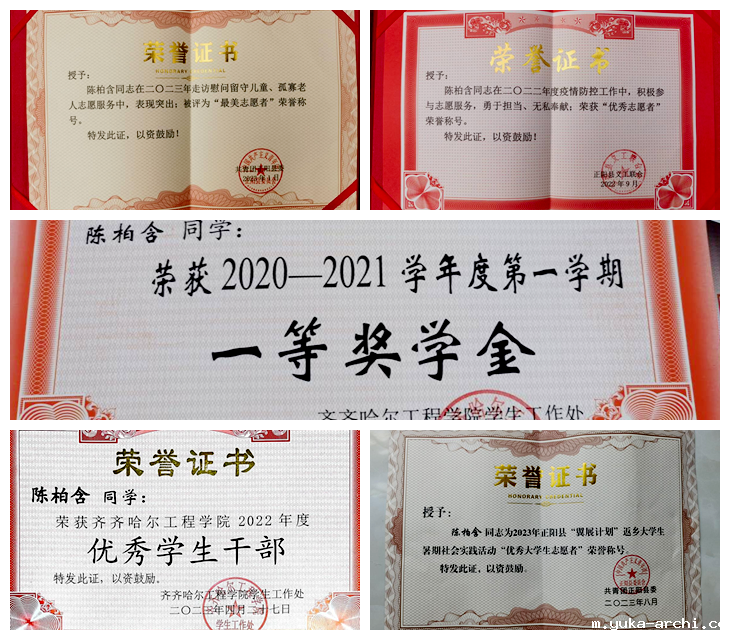 荣誉证书
HONORARY CREDENTIAL
授予：
陈柏含同志在二〇二三年走访慰问留守儿童、孤寡老
人志愿服务中，表现突出；被评为“最美志愿者”荣誉称
号。
特发此证，以资鼓励！
共青团正阳县委
荣誉证书
授予：
陈柏含同志在二〇二二年度疫情防控工作中，积极参
与志愿服务，勇于担当、无私奉献；荣获“优秀志愿者”
荣誉称号。
特发此证，以资鼓励！
正阳县义工联合
2022年9月
陈柏含 同学：
荣获2020—2021学年度第一学期
一等奖学金
齐齐哈尔工程学院学生工作处
荣誉证书
陈柏含 同学：
荣获齐齐哈尔工程学院2022年度
优秀学生干部
特发此证，以资鼓励。
齐齐哈尔工程学院学生工作处
二〇二三年四月二十七日
学生工作处
荣誉证书
HONORARY CREDENTIAL
授予：
陈柏含同志为2023年正阳县“翼展计划”返乡大学生
暑期社会实践活动“优秀大学生志愿者”荣誉称号。
特发此证，以资鼓励。
共青团正阳县委
二〇二三年八月
m.yuka-archi.co